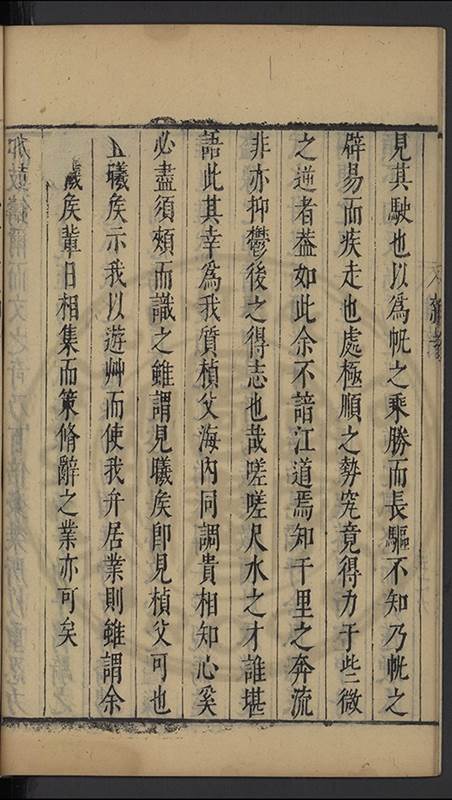 見其駛也以為帆之乘勝而長驅不知乃帆之
辟易而疾走也處極順之勢究竟得力于些微
之逆者葢如此余不諳江道焉知千里之奔流
非亦抑鬱後之得志也哉嗟嗟尺水之才誰堪
語此其幸為我質楨父海內同調貴相知心奚
必盡須頰而識之雖謂見曦矦即見楨父可也
曦矦示我以遊艸而使我弁居業則雖謂余
矦輩日相集而策脩辭之業亦可矣